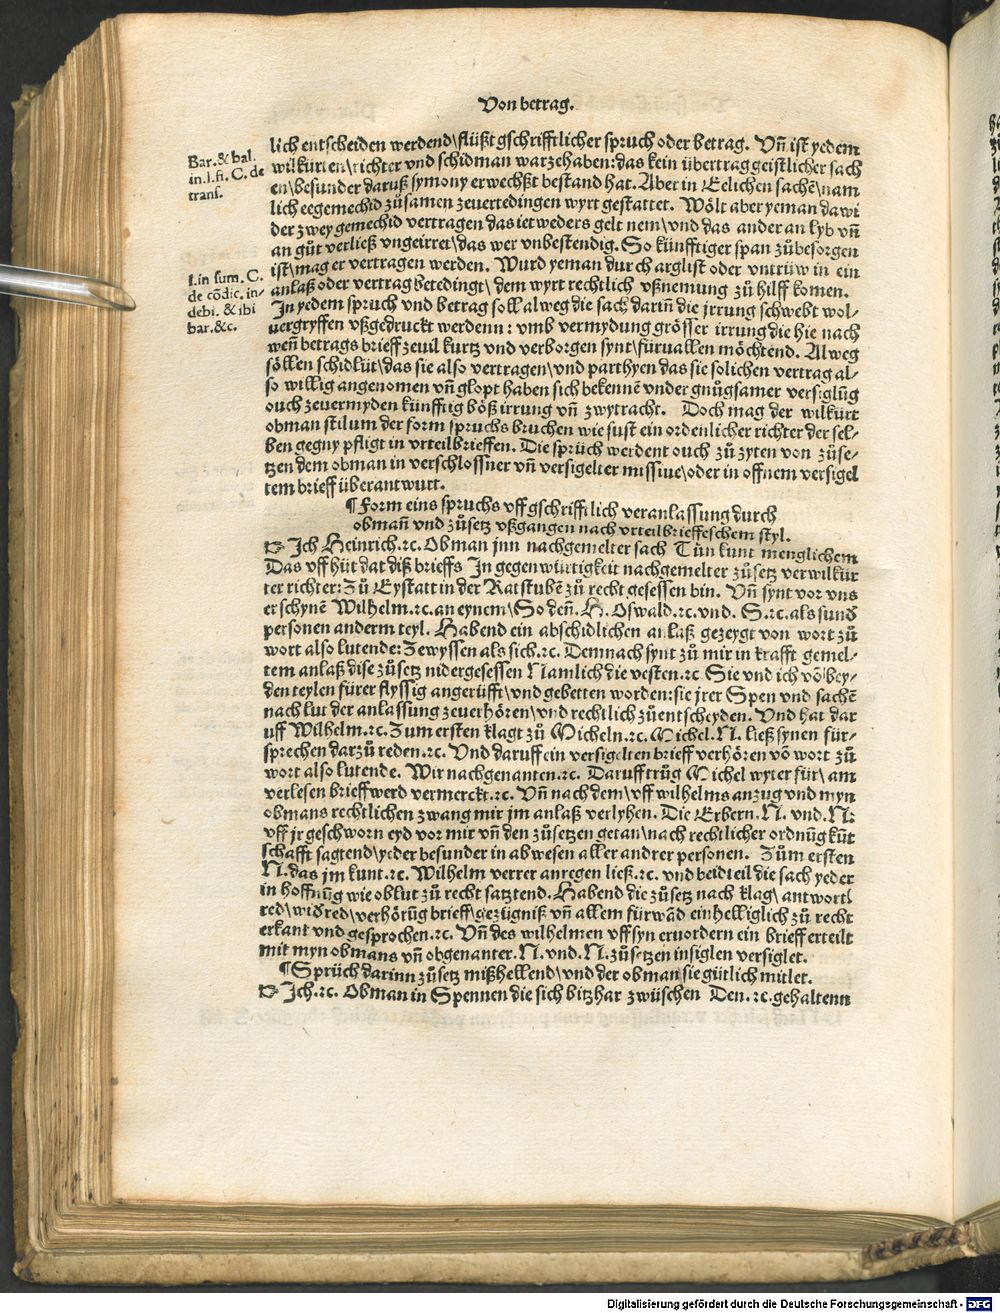 Von betrag.
lich entscheiden werdend\flüßt gschrifftlicher spruch oder betrag. Vn̄ ist yedem
wilkürten\richter vnd schidman warzehaben: das kein übertrag geistlicher sach
en\besunder daruß symony erwechßt bestand hat. Aber in Eelichen sachē\nam
lich eegemechid zůsamen zeuertedingen wyrt gestattet. Wölt aber yeman da wi
der zwey gemechid vertragen das ietweders gelt nem\vnd das ander an lyb vn̄
an gůt verließ vngeirret\das wer vnbestendig. So künfftiger span zůbesorgen
ist\mag er vertragen werden. Wurd yeman durch arglist oder vntrüw in ein
anlaß oder vertrag beredingt\dem wyrt rechtlich vßnemung zů hilff komen.
In yedem spruch vnd betrag soll alweg die sach darin̄ die jrrung schwebt wol-
uergryffen vßgedruckt werdenn: vmb vermydung grösser irrung die hie nach
wen̄ betrags brieff zeuil kurtz vnd verborgen synt\füruallen möchtend. Alweg
söllen schidlüt\das sie also vertragen\vnd parthyen das sie solichen vertrag al-
so willig angenomen vn̄ glopt haben sich bekennē vnder gnůgsamer versiglūg
ouch zeuermyden künfftig böß irrung vn̄ zwytracht. Doch mag der wilkürt
obman stilum der form spruchs bruchen wie sust ein ordenlicher richter der sel-
ben gegny pfligt in vrteilbrieffen. Die sprüch werdent ouch zů zyten von zůse-
tzen dem obman in verschlossner vn̄ versigelter missiue\oder in offnem versigel
tem brieff überantwurt.
¶ Form eins spruchs vff gschrifftlich veranlassung durch
oban̄ vnd zůsetz vßgangen nach vrteilbrieffeschem styl.
☞ Ich Heinrich.⁊c. Obman jnn nachgemelter sach Tůn kunt menglichem
Das vff hüt dat diß brieffs In gegenwürtigkeit nachgemelter zůsetz verwilkür
ter richter: Zů Eystatt in der Ratstubē zů recht gesessen bin. Vn̄ synt vor vns
erschynē Wilhelm.⁊c. an eynem\So den̄. H. Oswald.⁊c. vnd. S.⁊c. als sund̄
personen anderm teyl. Habend ein abschidlichen anlaß gezeygt von wort zů
wort also lutende: Zewyssen als sich.⁊c. Demnach synt zů mir in krafft gemel-
tem anlaß dise zůsetz nidergesessen Namlich die vesten.⁊c. Sie vnd ich vō bey-
den teylen fürer flyssig angerüfft\vnd gebetten worden: sie jrer Spen vnd sachē
nach lut der anlassung zeuerhören\vnd rechtlich zůentscheyden. Vnd hat dar
uff Wilhelm.⁊c. Zum ersten klagt zů Micheln.⁊c. Michel. N. ließ synen für-
sprechen darzů reden.⁊c. Vnd daruff ein versigelten brieff verhören vō wort zů
wort also lutende. Wir nachgenanten.⁊c. Daruff trůg Michel wyter für\am
verlesen brieff werd vermerckt.⁊c. Vn̄ nach dem\vff wilhelms anzug vnd myn
obmans rechtlichen zwang mir jm anlaß verlyhen. Die Erbern. N. vnd. N:
vff jr geschworn eyd vor mir vn̄ den zůsetzen getan\nach rechtlicher ordnūg kūt
schafft sagtend\yeder besunder in abwesen aller andrer personen. Zům ersten
N. das jm kunt.⁊c. Wilhelm verrer anregen ließ.⁊c. vnd beid teil die sach yeder
in hoffnūg wie oblut zů recht satztend. Habend die zůsetz nach klag\antwort\
red\wid̄red\verhörūg brieff\gezügniß vn̄ allem fürwād einhelliglich zů recht
erkant vnd gesprochen.⁊c. Vn̄ des wilhelmen vff syn eruordern ein brieff erteilt
mit myn obmans vn̄ obgenanter. N. vnd. N. zůsetzen insiglen versiglet.
¶ Sprüch darinn zůsetz mißhellend\vnd der obman sie gütlich mitlet.
☞ Ich.⁊c. Obman in Spennen die sich bitzhar zwüschen Den.⁊c. gehaltenn
Bar. & bal.
in.l.fi. C. de
trans.
l.in sum. C.
de cōdic. in-
debi. & ibi
bar.&c.
Digitalisierung gefördert durch die Deutsche Forschungsgemeinschaft - DFG